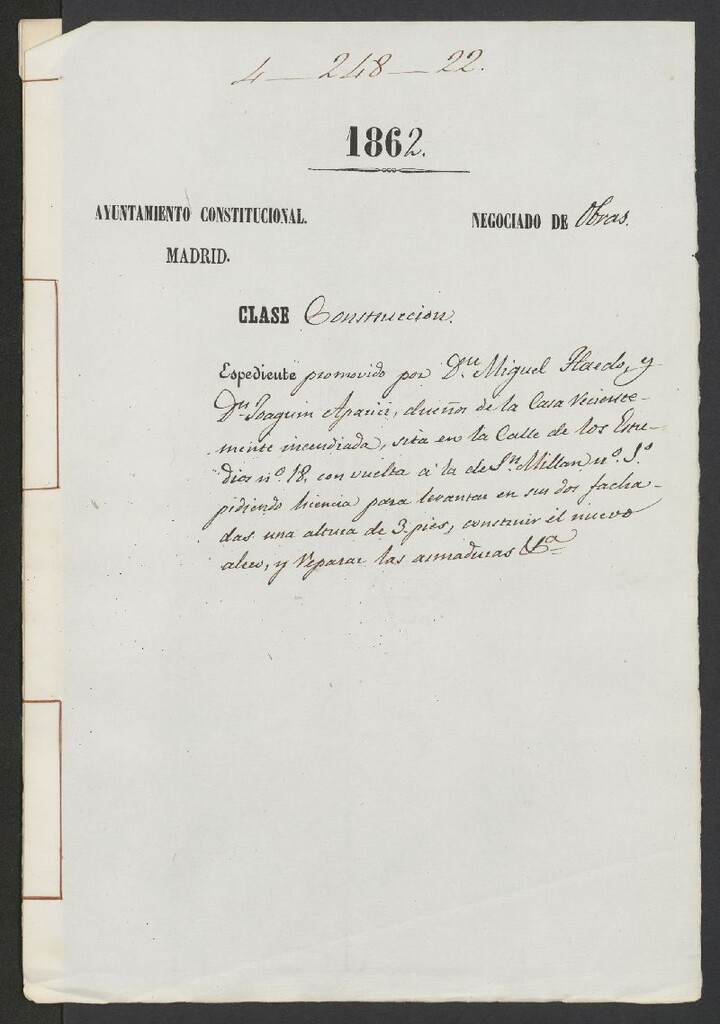 4 — 248 — 22.
1862.
AYUNTAMIENTO CONSTITUCIONAL.
MADRID.
NEGOCIADO DE Obras.
CLASE Construccion.
Espediente promovido por Dn. Miguel Haedo, y
Dn. Joaquin Aparici, dueños de la Casa reciente-
mente incendiada, sita en la Calle de los Estu-
dios nº. 18, con vuelta á la de Sn. Millan nº. 1º
pidiendo licencia para levantar en sus dos facha-
das una altura de 3 pies, construir el nuevo
alero, y reparar las armaduras &ª